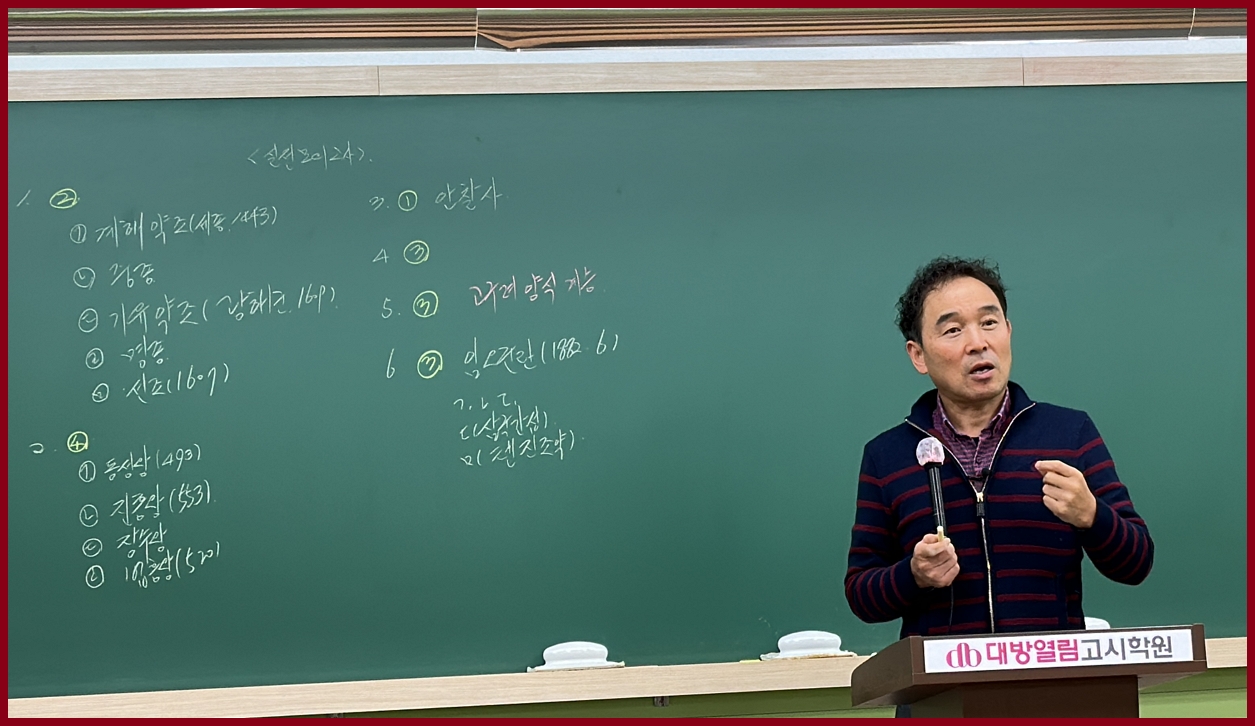 <실전모의 24>.
1. ②
㉠ 계해약조(세종, 1443)
㉡ 중종
㉢ 기유약조(광해군, 1609).
㉣ 명종
㉤ 선조(1607)
2. ④
㉠ 동성왕(493)
㉡ 진흥왕(553)
㉢ 장수왕
㉣ 법흥왕(520)
3. ① 안찰사
4 ③
5. ③
6 ③ 임오군란(1882. 6)
ㄱ, ㄴ, ㄷ,
ㄷ(삼국간섭)
ㅁ(톈진조약)
db 대방열림고시학원